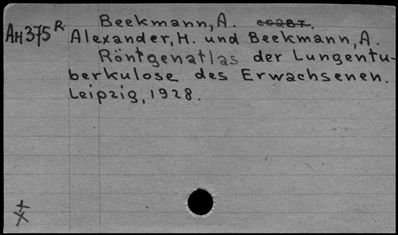 Beekmann, A. соавт.
АН375R Alexander, H. und Beekmann, A.
Röntgenatlas der Lungentu-
berkulose des Erwachsenen.
Leipzig, 1928.
+
X